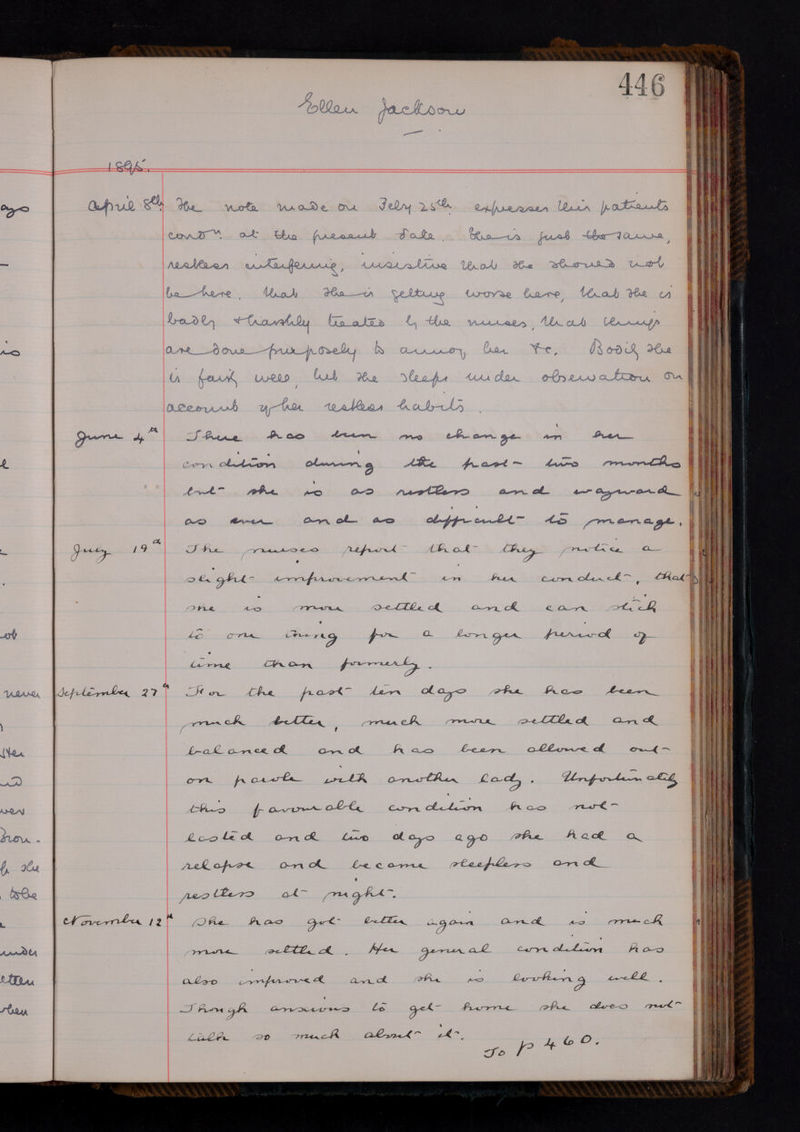 446
Ellen Jackson
1895.
April 8th The note made on Feby 25th expresses this patients
condn. at the present date. She is just the same,
restless interfering, insistive that she should not
be here, that she is getting worse here, that she is
badly & harshly treated by the nurses, that things
are done purposely to annoy her &c. Bodily she
is fairly well, but she sleeps under observation on
account of her restless habits.
June 4th There has been no change in her
condition during the past two months
but she is as restless and wayward
as ever and as difficult to manage.
July 19th The nurses report that they notice a
slight improvement in her conduct, that
she is more settled and can stick
to one thing for a longer period of
time than formerly.
September 27th For the past ten days she has been
much better, much more settled and
balanced and has been allowed out
on parole with another lady. Unfortunately
this favourable condition has not
lasted and two days ago she had a
relapse and became sleepless and
restless at night.
November 12th She has got better again and is much
more settled. Her general condition has
also improved and she is looking well.
Though anxious to get home she does not
talk so much about it.
To p 460.
never
Her
she
to be
under
when